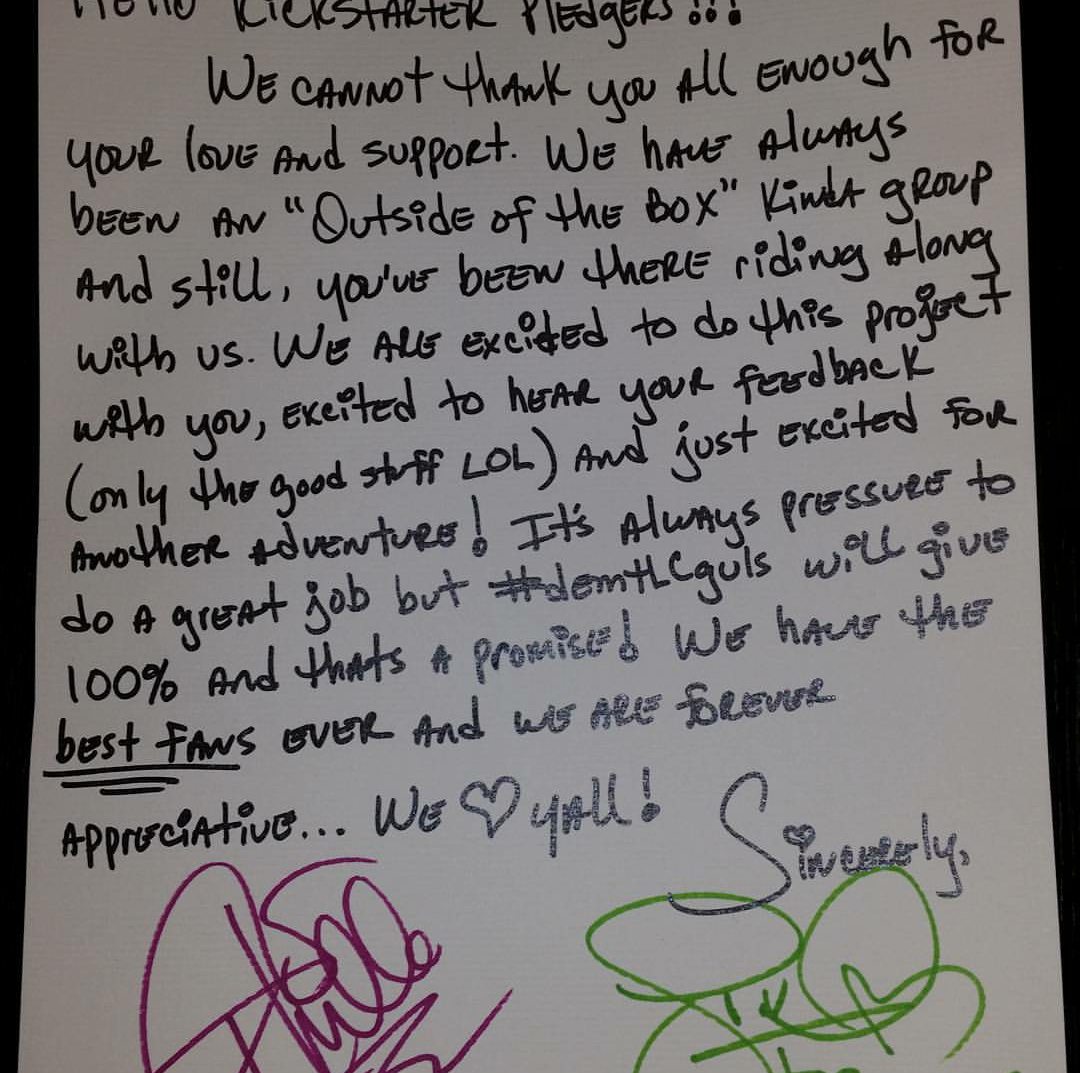 Hello Kickstarter Pledgers!!!
We cannot thank you all enough for
your love and support. We have always
been an "Outside of the Box" kinda group
and still, you've been there riding along
with us. We are excited to do this project
with you, excited to hear your feedback
(only the good stuff LOL) and just excited for
another adventure! It's always pressure to
do a great job but #demtLCguls will give
100% and thats a promise! We have the
best fans ever and we are forever
appreciative... We ♡ yall!
Sincerely,